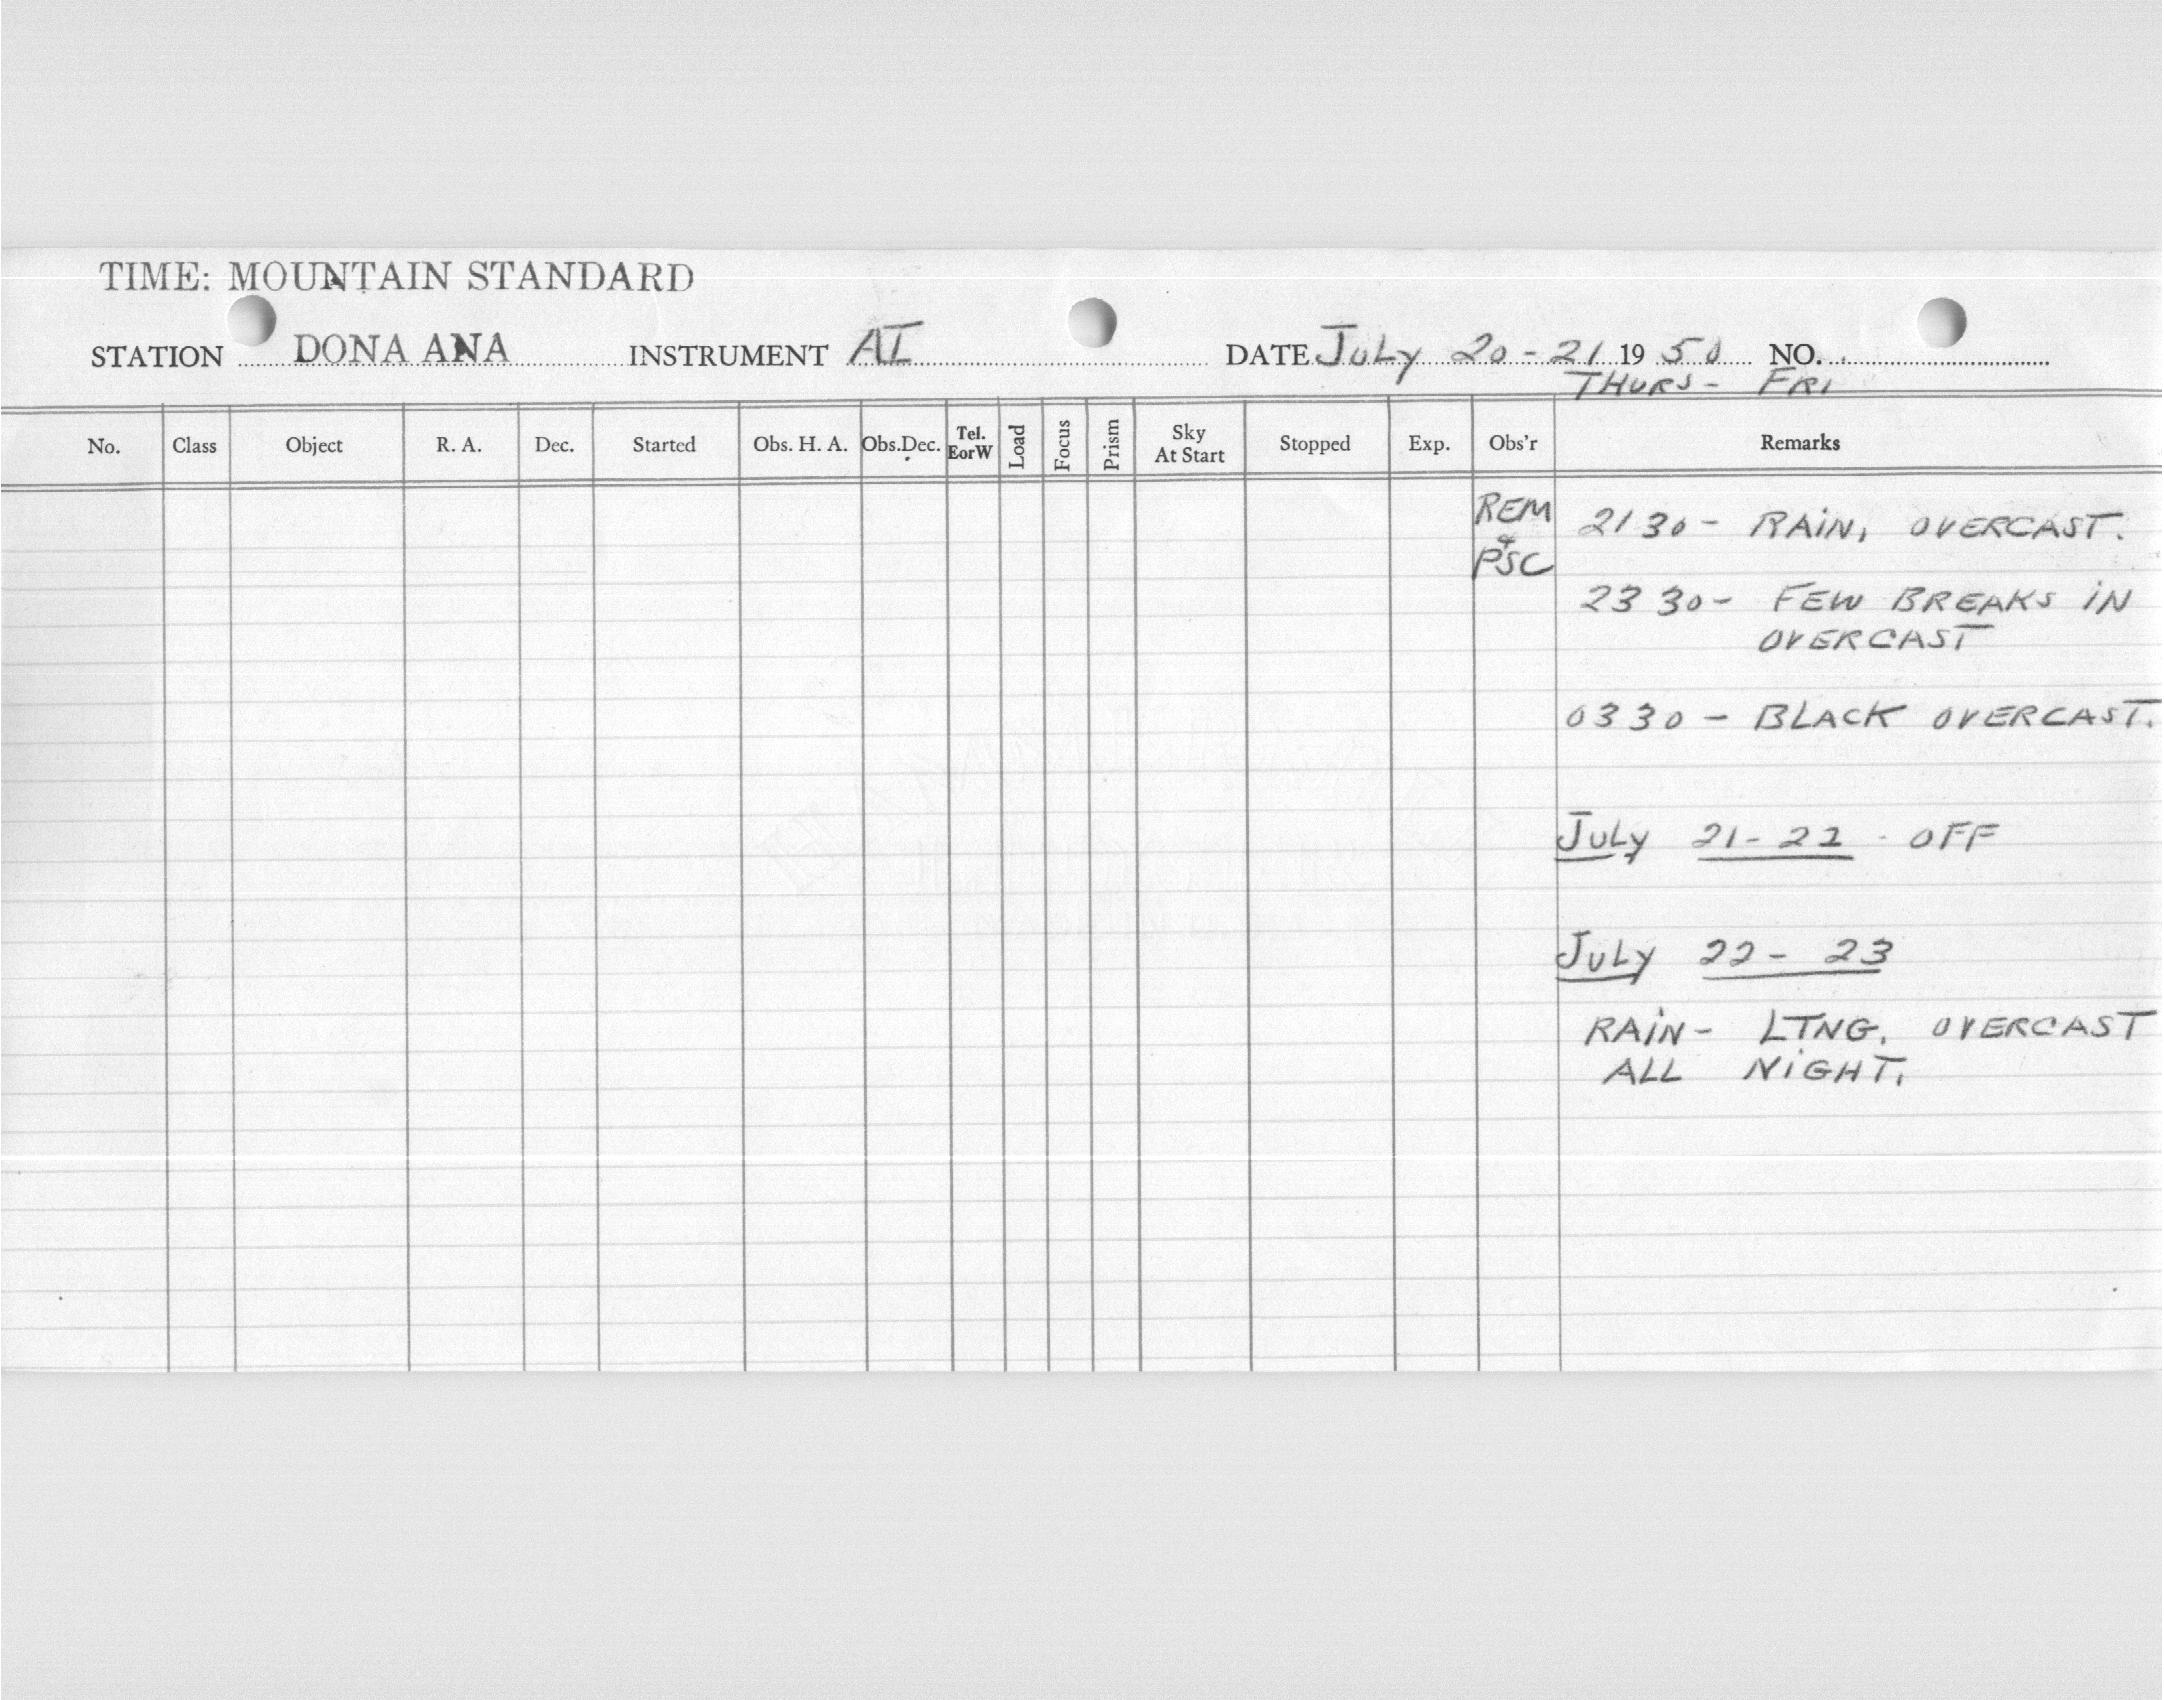 TIME: MOUNTAIN STANDARD
STATION DONA ANA INSTRUMENT AI DATE July 20-21 1950 NO.
THURS- FRI
No. Class Object R. A. Dec. Started Obs. H. A. Obs.Dec. Tel. EorW Load Focus Prism Sky At Start Stopped Exp. Obs'r Remarks
REM 2130- RAIN, OVERCAST.
&
PSC
2330- FEW BREAKS IN
OVERCAST
0330 - BLACK OVERCAST.
July 21-22 - OFF
July 22-23
RAIN- LTNG, OVERCAST
ALL NIGHT.